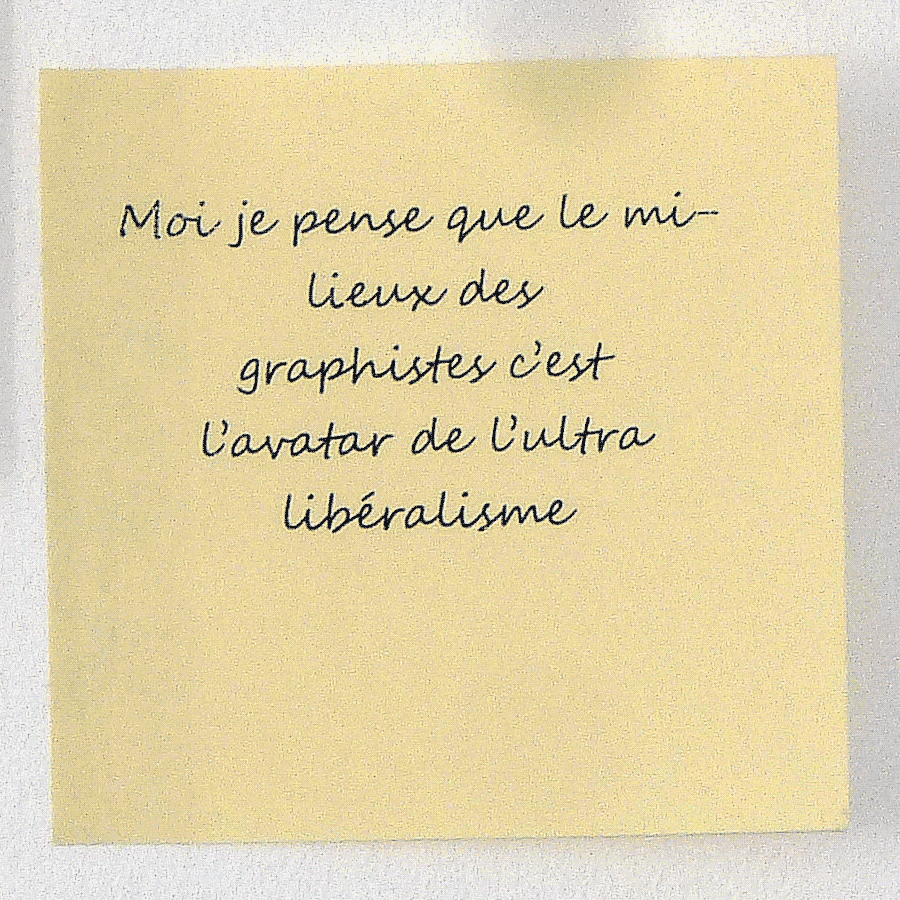 Moi je pense que le mi-
lieux des
graphistes c'est
l'avatar de l'ultra
libéralisme